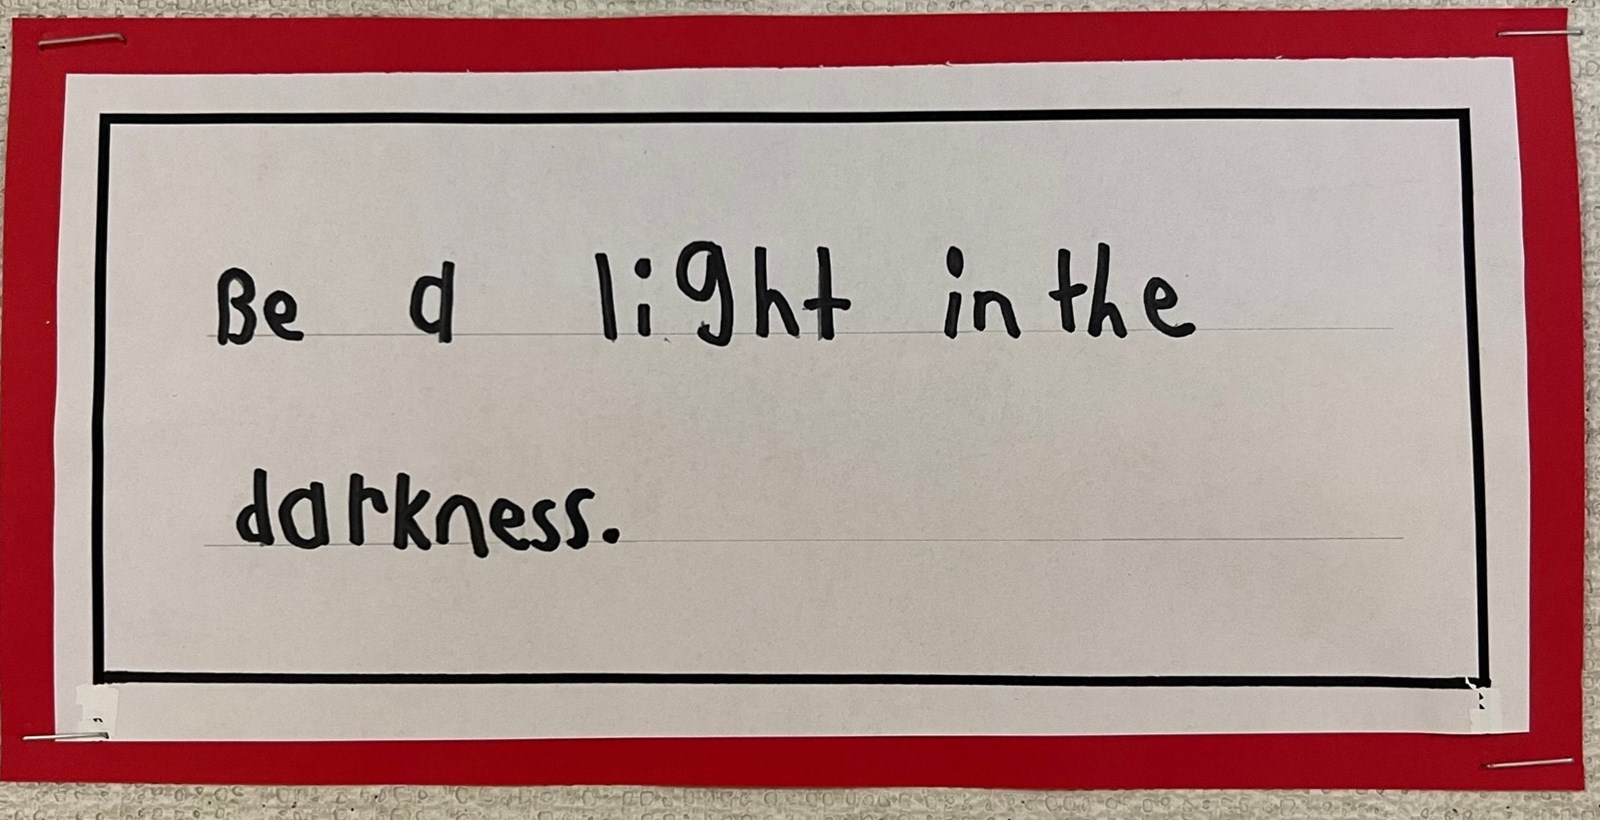 Be a light in the
darkness.